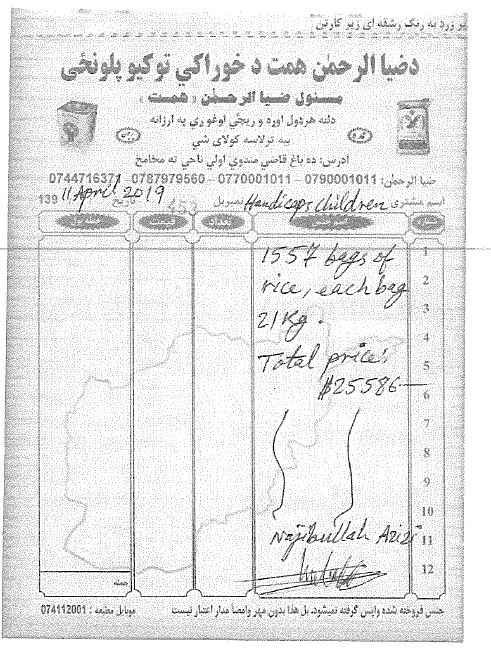 پر ورد به رنگ رشقه ای زیر کارتن
دضیا الرحمٰن همت د خوراکي توکیو پلونځی
مسئول ضیا الرحمٰن «همت»
دلته هر دول اوره و ریجي اوغوري په ارزانه
بیه ترلاسه کولای شي
آدرس: ده باغ قاضي صدوي اولي ناحي ته مخامخ
ضیا الرحمٰن: 0790001011 - 0770001011 - 0787979560 - 0744716371
اسم مشتری Handicaps children نمبربل 453 تاریخ 11 April 2019 139
1 1557 bags of
2 rice, each bag
3 21 Kg.
4 Total price:
5 $25586—
6
7
8
9
10
11 Najibullah Azizi
12
جمله
جنس فروخته شده واپس گرفته نمیشود. بل هذا بدون مهر وامضا مدار اعتبار نیست
موبایل مطبعه : 074112001